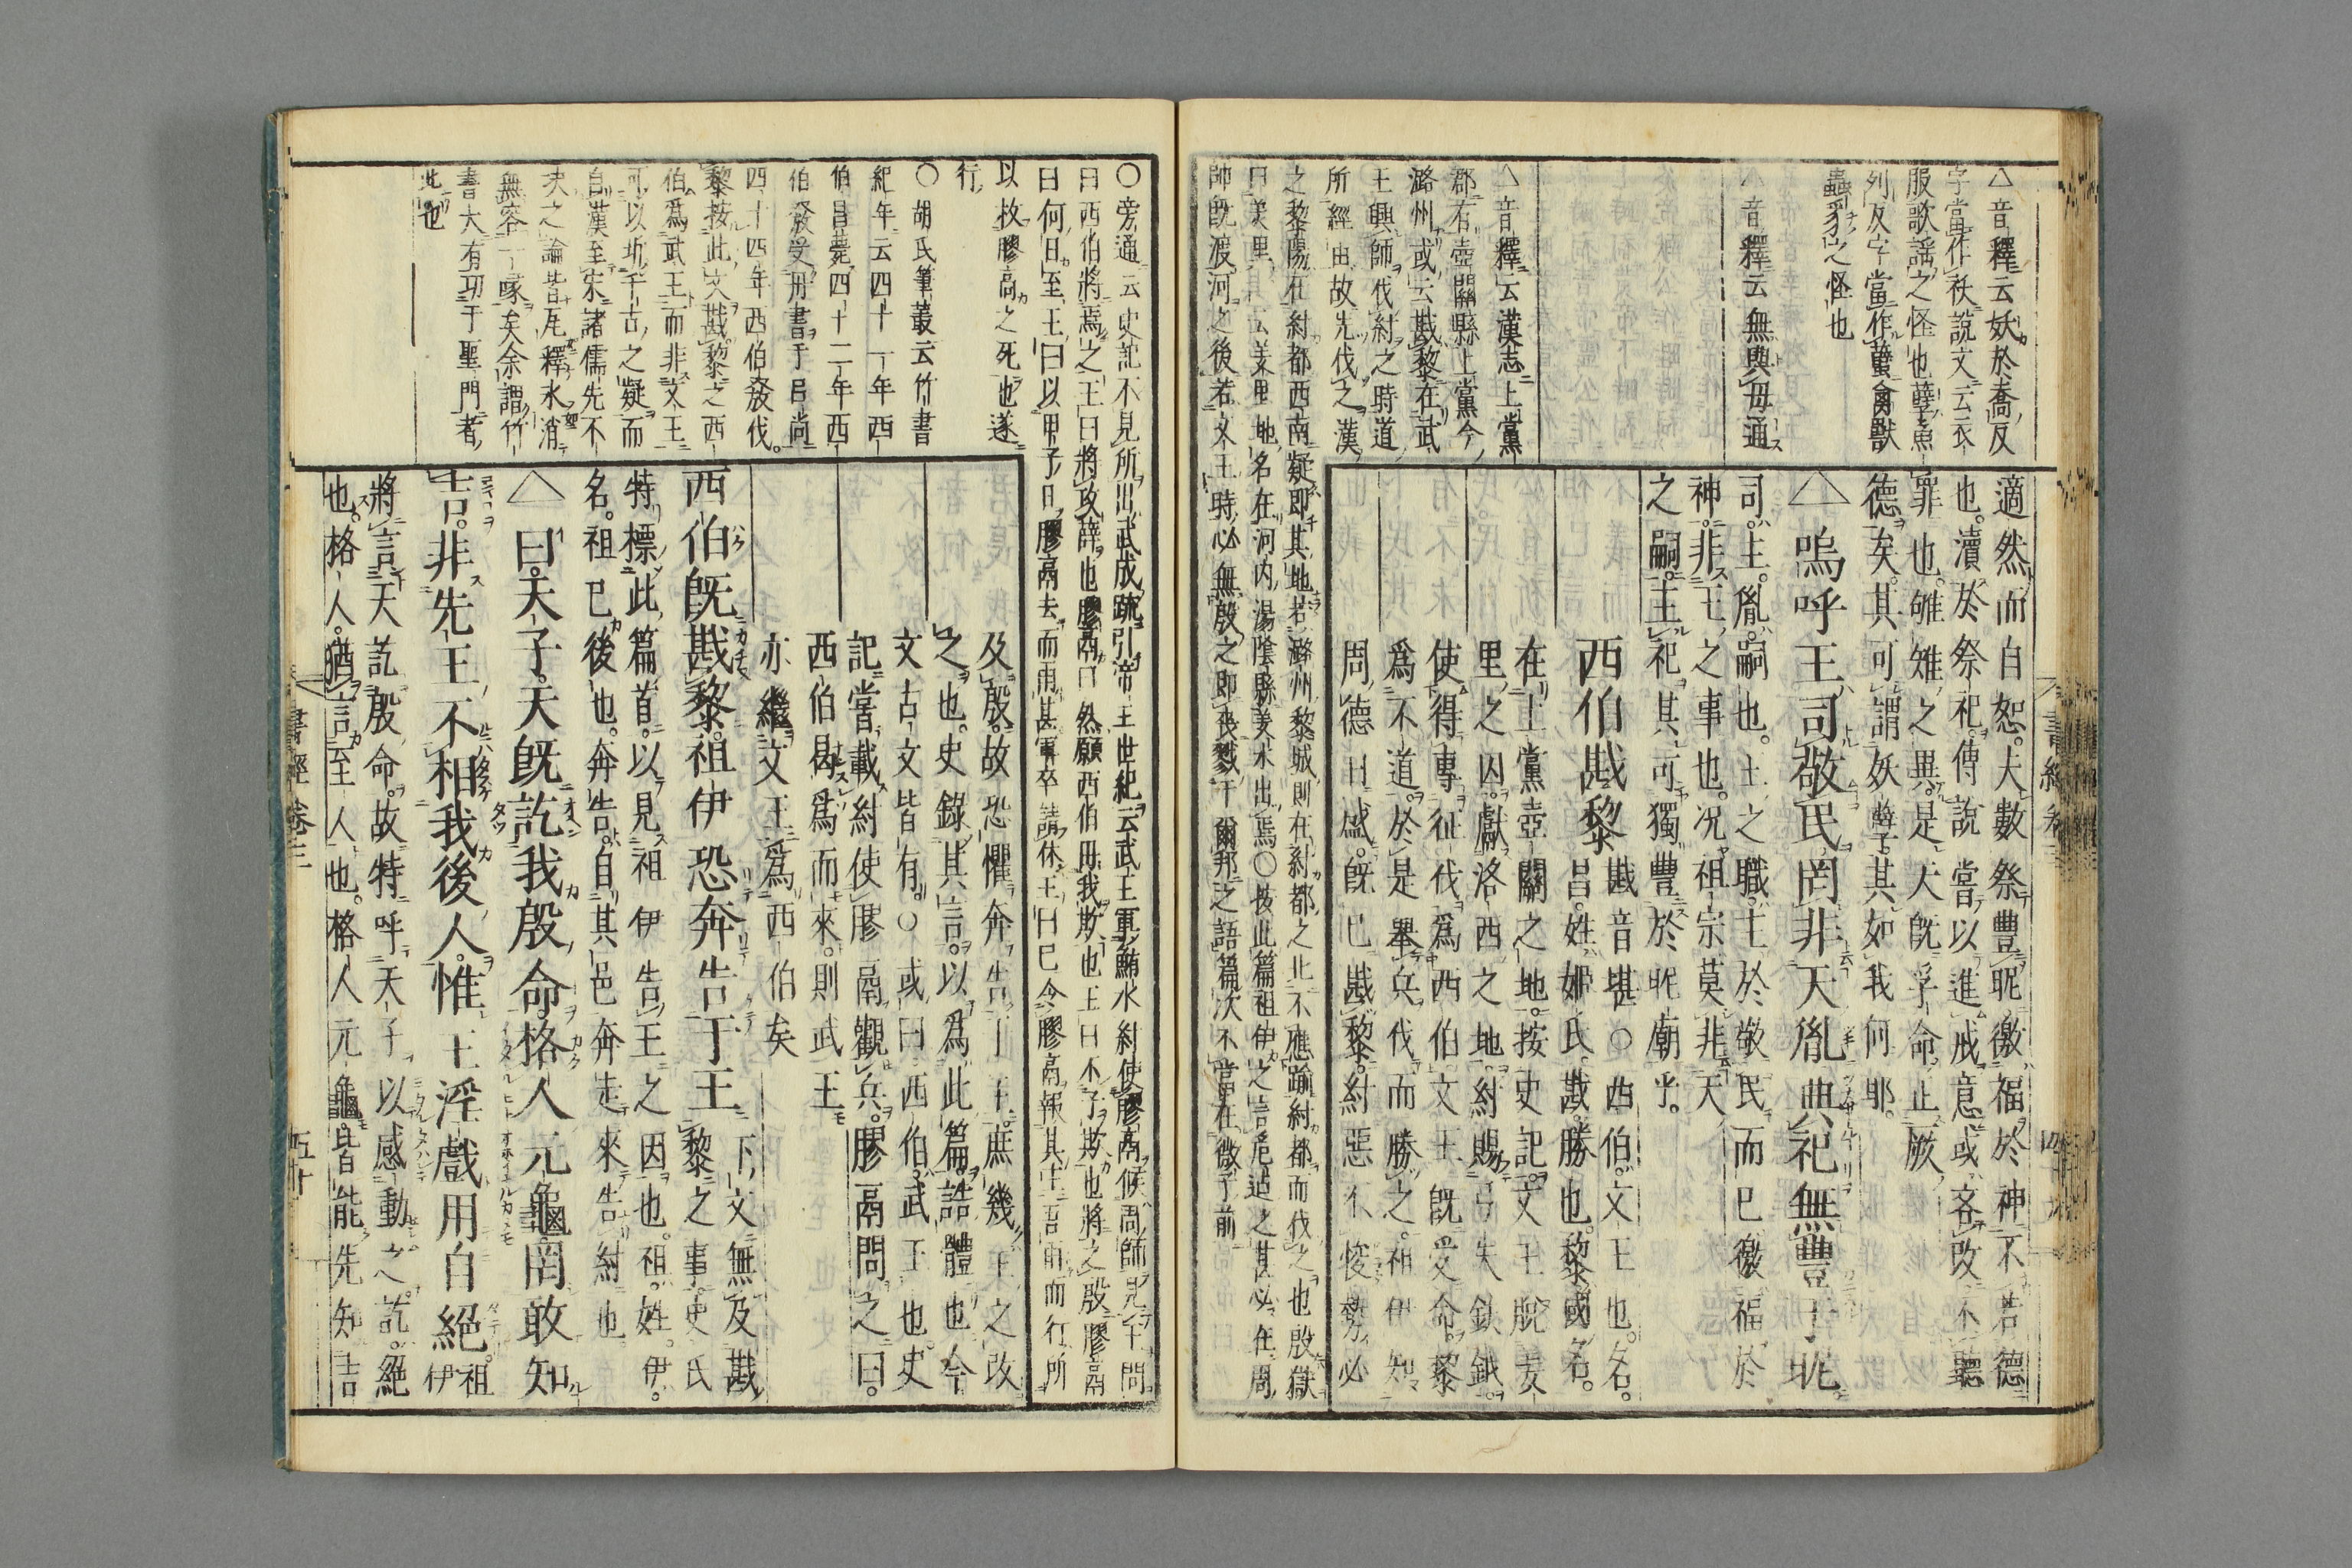 △音釋云妖於喬反
字當作祅說文云衣
服歌謠之怪也孽魚
列反字當作蠥禽獸
蟲豸之怪也
△音釋云無與毋通
△音釋云漢志上黨
郡有壺關縣上黨今
潞州或云戡黎在武
王興師伐紂之時道
所經由故先伐之漢
之黎陽在紂都西南疑即其地若潞州黎城則在紂都之北不應踰紂都而伐之也殷獄
曰羑里其云羑里地名在河内湯陰縣羑水出焉○按此篇祖伊之言危迫之甚必在周
師既渡河之後若文王時必無殷之即喪戮于爾邦之語篇次不當在微子前
適然而自恕夫數祭豐昵徼福於神不若德
也瀆於祭祀傳說嘗以進戒意或吝改不聽
罪也雊雉之異是天既孚命正厥
德矣其可謂妖孽其如我何耶
△嗚呼王司敬民罔非天胤典祀無豐于昵
司主胤嗣也王之職主於敬民而已徼福於
神非王之事也况祖宗莫非天
之嗣主祀其可獨豐於昵廟乎
西伯戡黎
戡音堪○西伯文王也名
昌姓姬氏戡勝也黎國名
在上黨壺關之地按史記文王脫羑
里之囚獻洛西之地紂賜弓矢鈇鉞
使得專征伐爲西伯文王既受命黎
爲不道於是舉兵伐而勝之祖伊知
周德日盛既已戡黎紂惡不悛勢必
書經卷三
○旁通云史記不見所出武成疏引帝王世紀云武王軍鮪水紂使膠鬲候周師見王問
曰西伯將焉之王曰將攻薛也膠鬲曰然願西伯毋我欺也王曰不子欺也將之殷膠鬲
曰何日至王曰以甲子日膠鬲去而雨甚軍卒請休王曰已令膠鬲報其主吾雨而行所
以救膠鬲之死也遂
行
○胡氏筆叢云竹書
紀年云四十一年西
伯昌薨四十二年西
伯發受丹書于呂尚
四十四年西伯發伐
黎按此文戡黎之西
伯爲武王而非文王
可以斷千古之疑而
自漢至宋諸儒先不
決之論皆瓦釋水消
無容一啄矣余謂竹
書大有功于聖門者
此也
及殷故恐懼奔告于王庶幾王之改
之也史錄其言以爲此篇誥體也今
文古文皆有○或曰西伯武王也史
記嘗載紂使膠鬲觀兵膠鬲問之曰
西伯曷爲而來則武王
亦繼文王爲西伯矣
西伯既戡黎祖伊恐奔告于王
下文無及戡
黎之事史氏
特標此篇首以見祖伊告王之因也祖姓伊
名祖已後也奔告自其邑奔走來告紂也
△曰天子天既訖我殷命格人元龜罔敢知
吉非先王不相我後人惟王淫戲用自絕
祖
伊
將言天訖殷命故特呼天子以感動之訖絕
也格人猶言至人也格人元龜皆能先知吉
書經卷三
五十